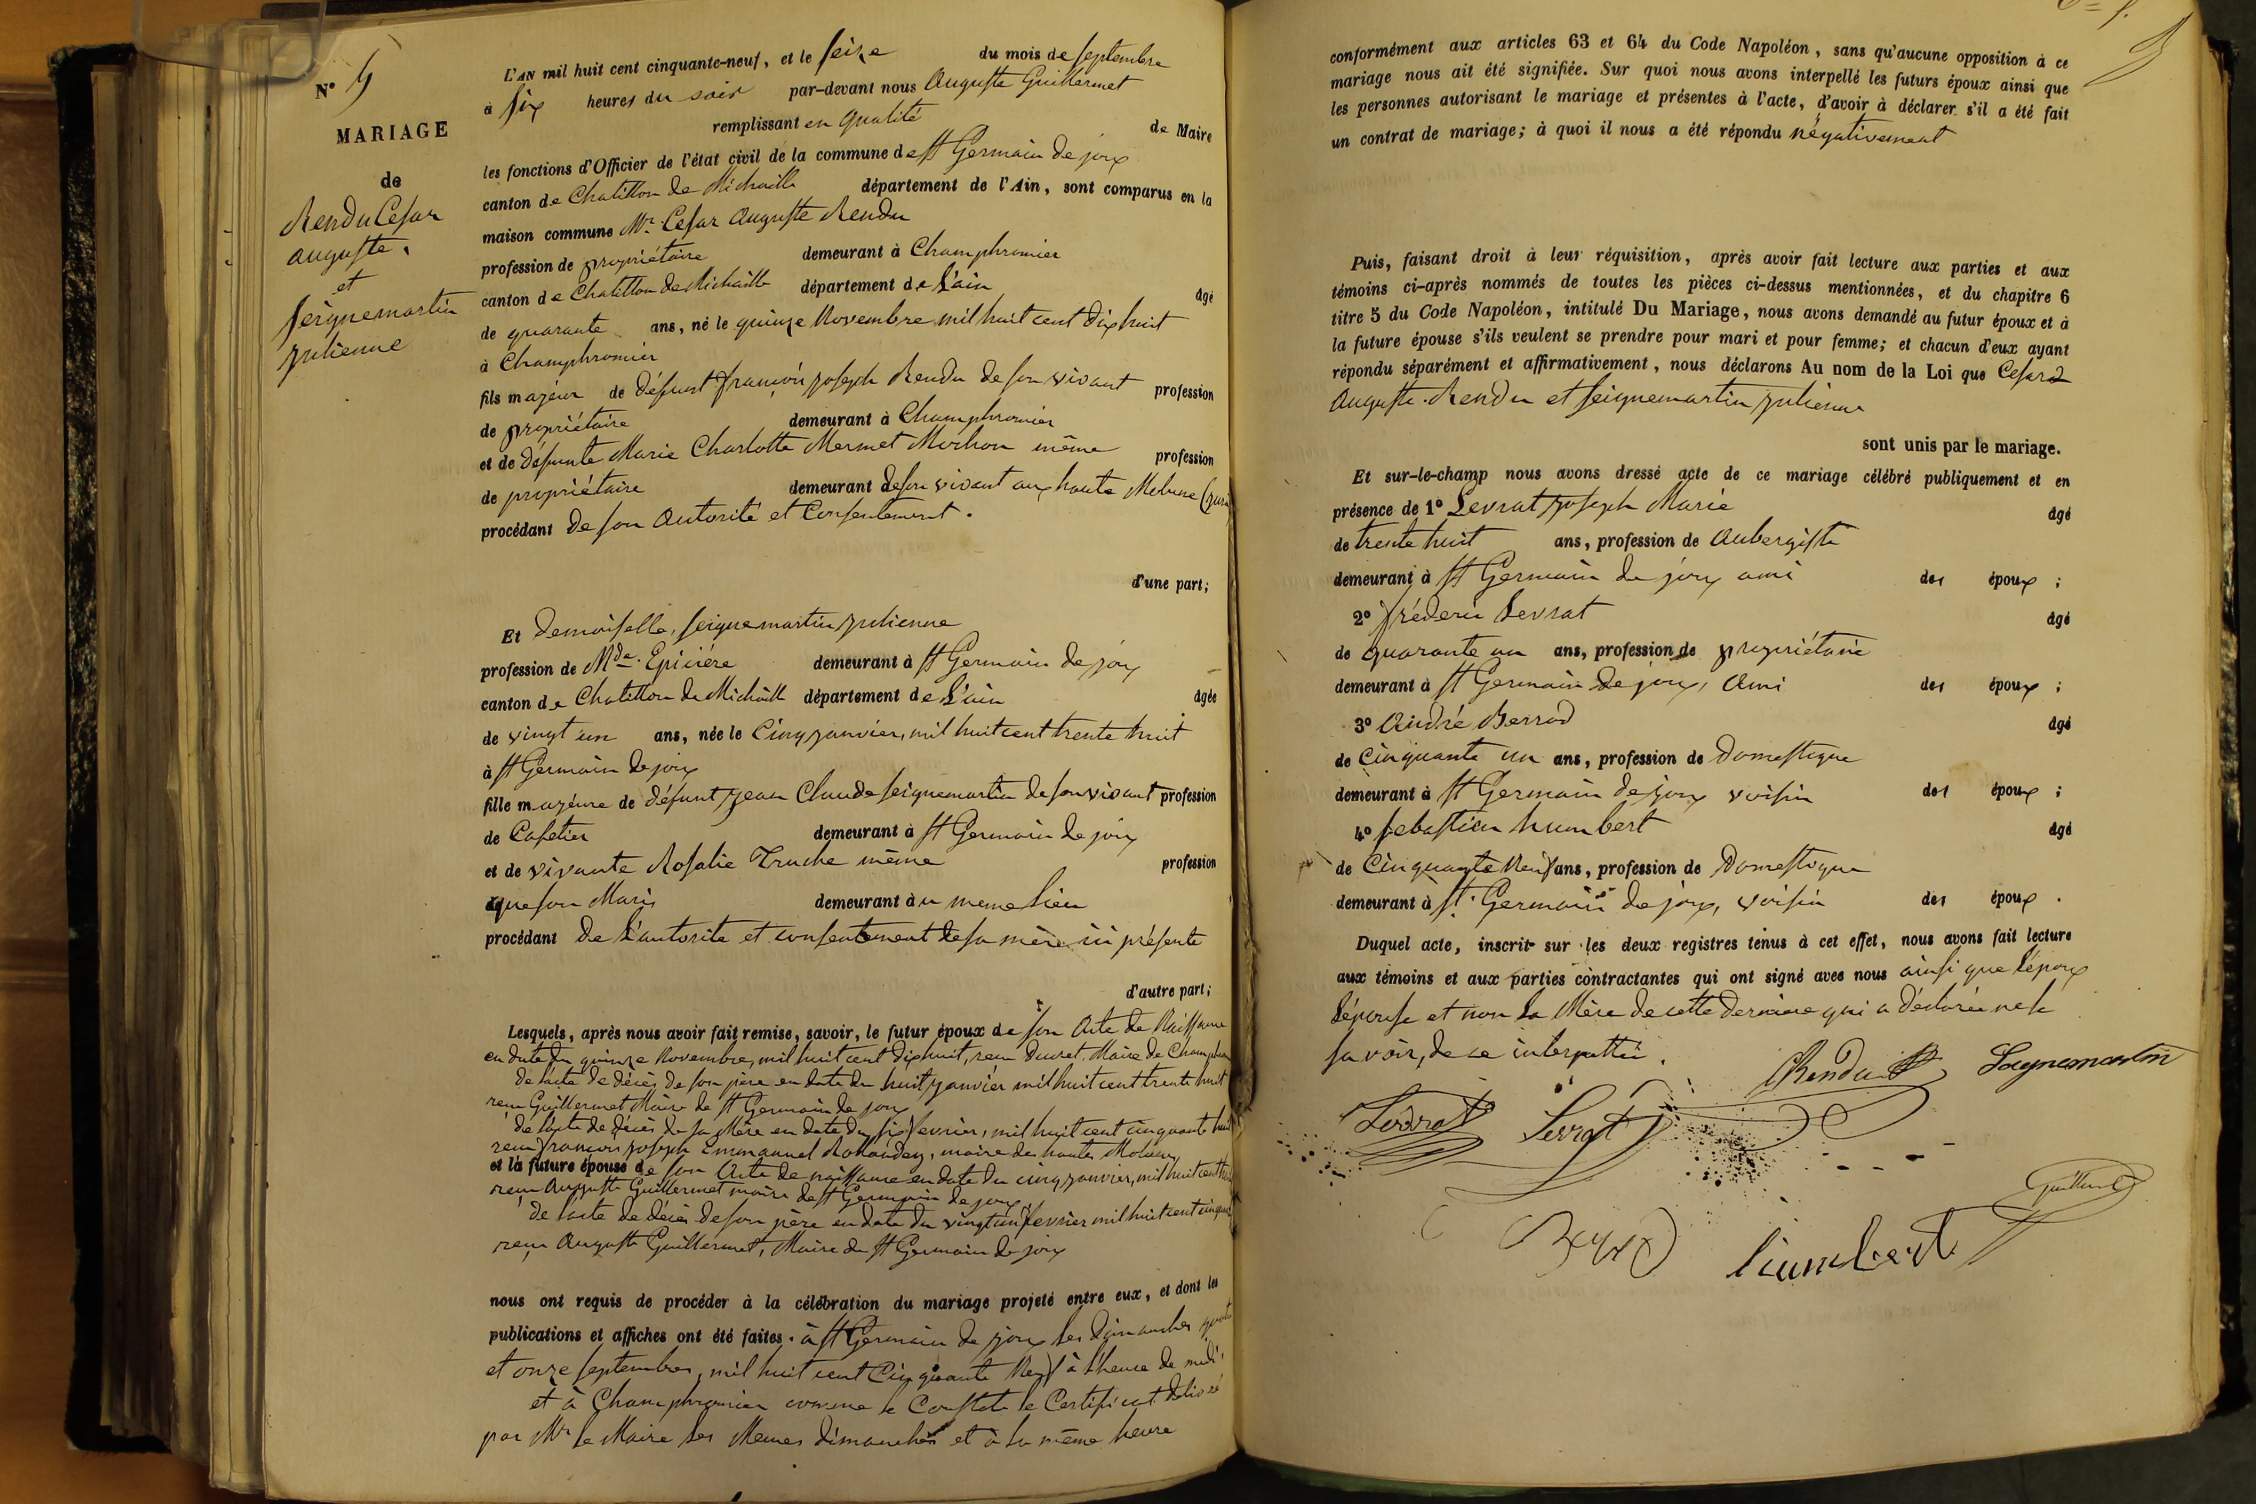 N° 5
MARIAGE
de
Rendu Cesar
auguste,
et
Seignemartin
Julienne
L'AN mil huit cent cinquante-neuf, et le seize du mois de septembre
à six heures du soir par-devant nous Auguste Guillermet
remplissant en qualité de Maire
les fonctions d'Officier de l'état civil de la commune de St Germain de joux
canton de Chatillon de Michaille département de l'Ain, sont comparus en la
maison commune Mr. Cesar Auguste Rendu
profession de propriétaire demeurant à Champfromier
canton de Chatillon de Michaille département de L'ain âgé
de quarante ans, né le quinze Novembre mil huit cent dix huit
à Champfromier
fils majeur de défunt françois joseph Rendu de son vivant profession
de propriétaire demeurant à Champfromier
et de défunte Marie Charlotte Mermet Mochon même profession
de propriétaire demeurant de son vivant aux haute Molune
procédant de son autorité et consentement.
d'une part;
Et demoiselle, seignemartin julienne
profession de Mde. Epiciére demeurant à St Germain de joux
canton de Chatillon de Michaille département de L'ain âgée
de vingt un ans, née le Cinq janvier, mil huit cent trente huit
à St Germain de joux
fille majeure de défunt jean Claude seignemartin de son vivant profession
de Cafetier demeurant à St Germain de joux
et de vivante Rosalie Truche même profession
que son Maris demeurant à u meme lieu
procédant de L'autorite et consentement de sa mère ici présente
d'autre part;
Lesquels, après nous avoir fait remise, savoir, le futur époux de son Acte de Naissance
en date du quinze Novembre, mil huit cent dix huit, recu Ducret Maire de
de l'acte de décès de son père en date du huit janvier mil huit cent trente huit
recu Guillermet Maire de St Germain de joux
de l'acte de décès de sa Mère en date du six fevrier, mil huit cent cinquante
recu francois joseph Emmanuel, maire des hautes Molunes
et la future épouse de son Acte de naissance en date du cinq janvier, mil huit cent
recu Auguste Guillermet maire de St Germain de joux,
de l'acte de décès de son père en date du vingt un fevrier mil huit cent
reçu Auguste Guillermet, Maire de St Germain de joux
nous ont requis de procéder à la célébration du mariage projeté entre eux, et dont les
publications et affiches ont été faites. à St Germain de joux les dimanches quatre
et onze septembre, mil huit cent Cinquante Neuf à L'heure de midi,
et à Champfromier comme le Constate le Certificat delivré
par Mr le Maire les Memes dimanches et à la même heure
conformément aux articles 63 et 64 du Code Napoléon, sans qu'aucune opposition à ce
mariage nous ait été signifiée. Sur quoi nous avons interpellé les futurs époux ainsi que
les personnes autorisant le mariage et présentes à l'acte, d'avoir à déclarer s'il a été fait
un contrat de mariage; à quoi il nous a été répondu négativement
Puis, faisant droit à leur réquisition, après avoir fait lecture aux parties et aux
témoins ci-après nommés de toutes les pièces ci-dessus mentionnées, et du chapitre 6
titre 5 du Code Napoléon, intitulé Du Mariage, nous avons demandé au futur époux et à
la future épouse s'ils veulent se prendre pour mari et pour femme; et chacun d'eux ayant
répondu séparément et affirmativement, nous déclarons Au nom de la Loi que Cesard
Auguste Rendu et seignemartin julienne
sont unis par le mariage.
Et sur-le-champ nous avons dressé acte de ce mariage célébré publiquement et en
présence de 1° Levrat joseph Marie âgé
de trente huit ans, profession de Aubergiste
demeurant à St Germain de joux ami des époux ;
2° fréderic Levrat âgé
de quarante un ans, profession de propriétaire
demeurant à St Germain de joux, Ami des époux ;
3° André Berrod âgé
de Cinquante un ans, profession de Domestique
demeurant à St Germain de joux voisin des époux ;
4° sebastien humbert âgé
de Cinquante Neuf ans, profession de Domestique
demeurant à St. Germain de joux, voisin des époux .
Duquel acte, inscrit sur les deux registres tenus à cet effet, nous avons fait lecture
aux témoins et aux parties contractantes qui ont signé avec nous ainsi que L'époux
L'épouse et non La Mère de cette derniere qui a déclarée ne le
savoir, de ce interpellée.
Rendu Seignemartin
Levrat Levrat
Guillermet
Berrod humbert